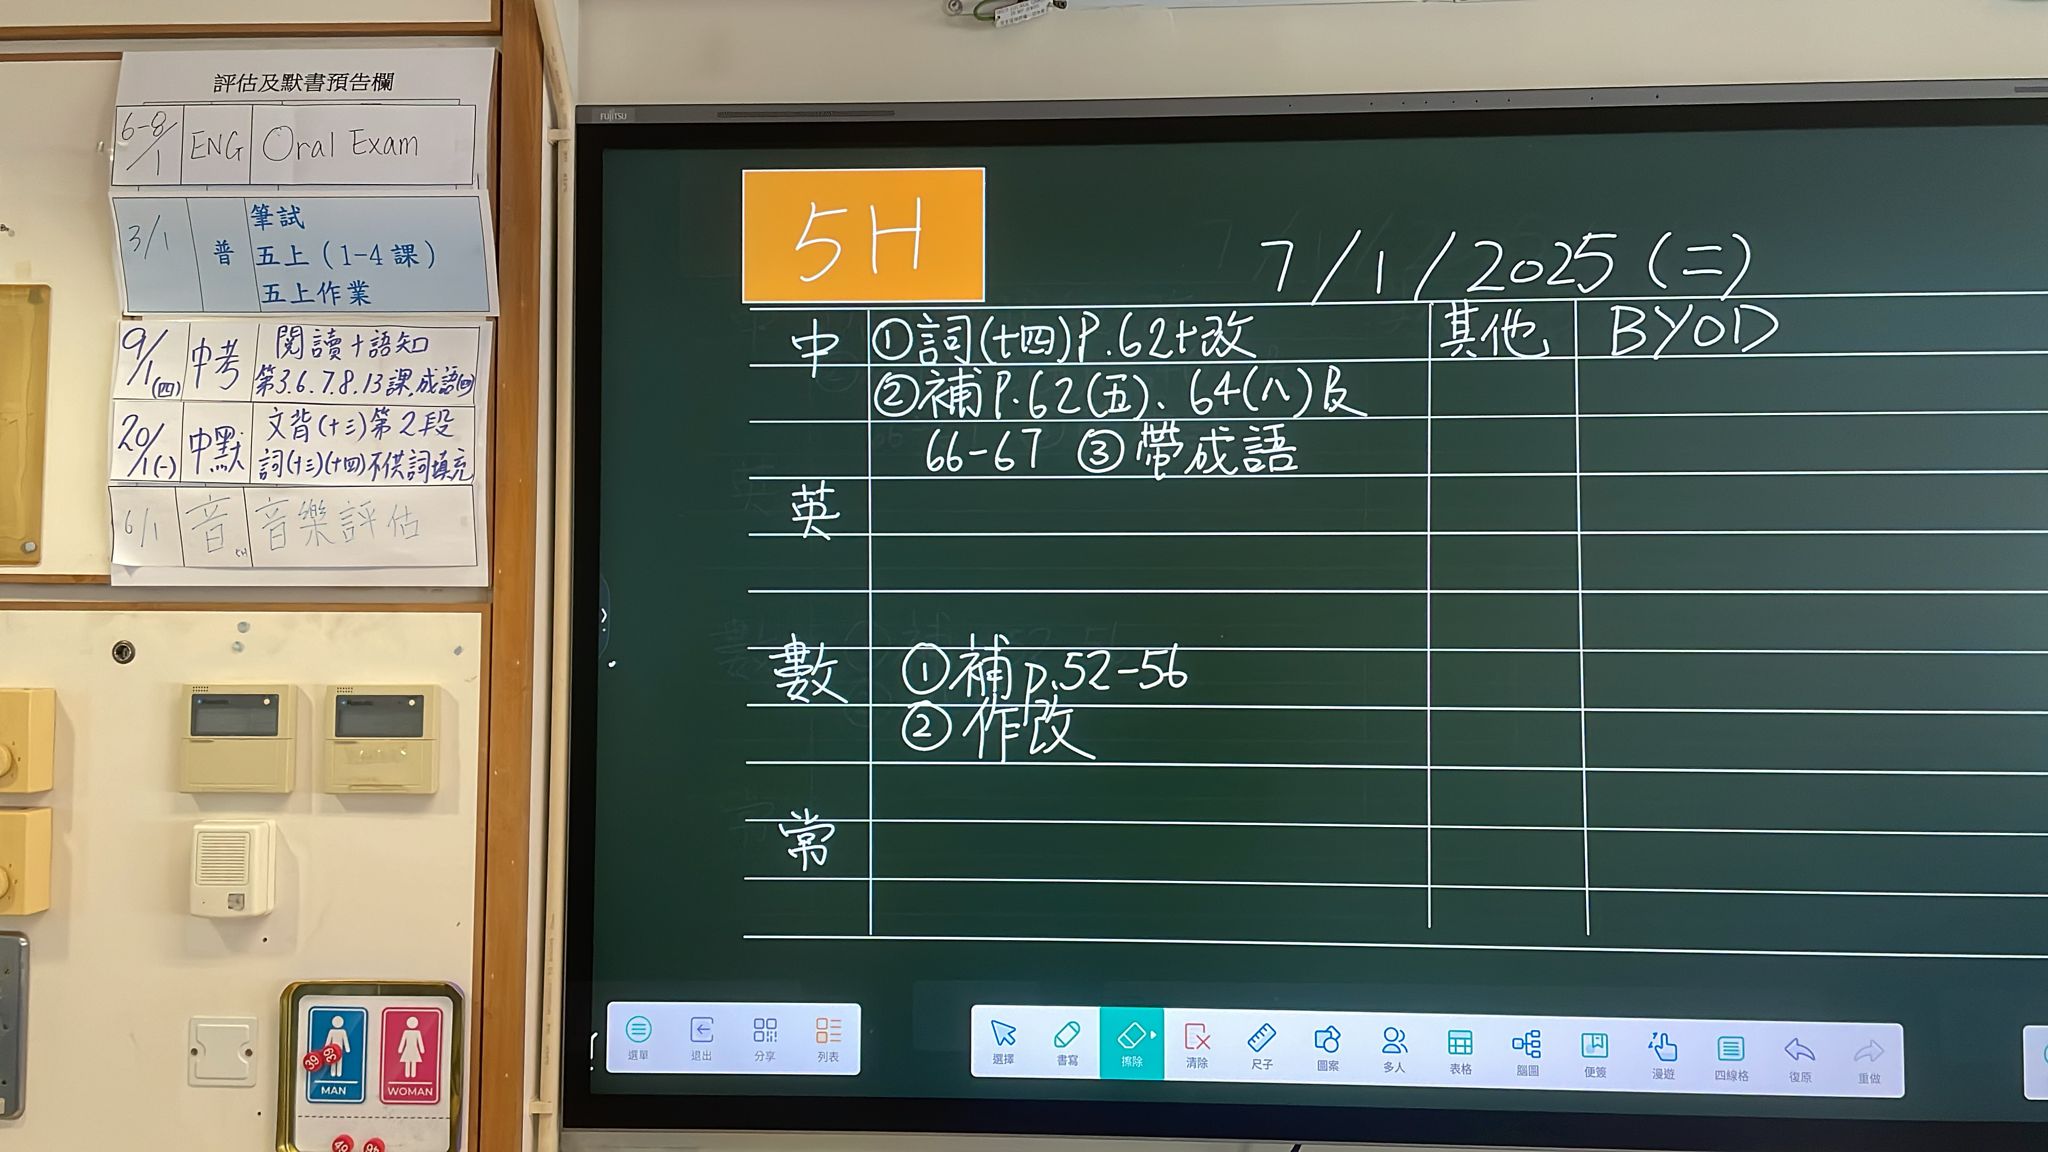 評估及默書預告欄
6-8/1 ENG Oral Exam
3/1 普 筆試
五上(1-4課)
五上作業
9/1(四) 中考 閱讀+語知
第3.6.7.8.13課,成語(四)
20/1(一) 中默 文背(十三)第2段
詞(十三)(十四)不供詞填充
6/1 音 5H 音樂評估
FUJITSU
5H
7/1/2025(二)
中 ①詞(十四)P.62+改 其他 BYOD
②補P.62(五)、64(八)及
66-67 ③帶成語
英
數 ①補p.52-56
②作改
常
選單 退出 分享 列表
選擇 書寫 擦除 清除 尺子 圖案 多人 表格 腦圖 便簽 漫遊 四線格 復原 重做
39 39
MAN WOMAN